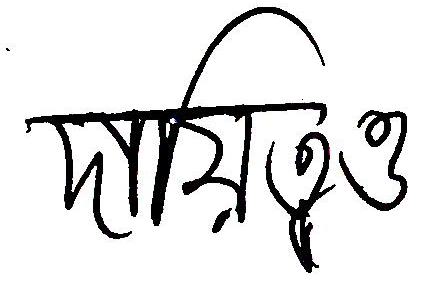 দায়িত্ব ও